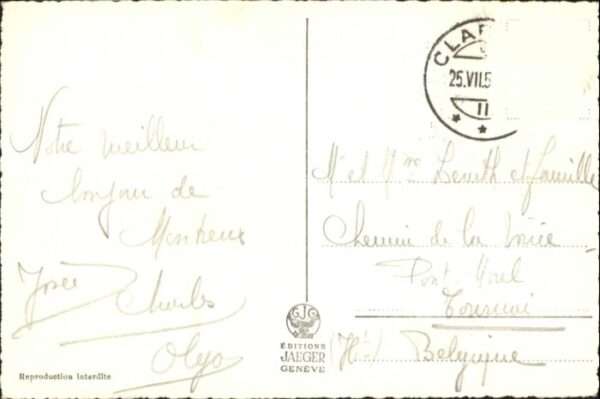 CLAR
25.VII.5
II
Notre meilleur
bonjour de
Montreux
Charles
Olga
Reproduction interdite
GJG
ÉDITIONS
JAEGER
GENÈVE
Mr et Mme et famille
Chemin de la
Pont
Tournai
(Ht) Belgique